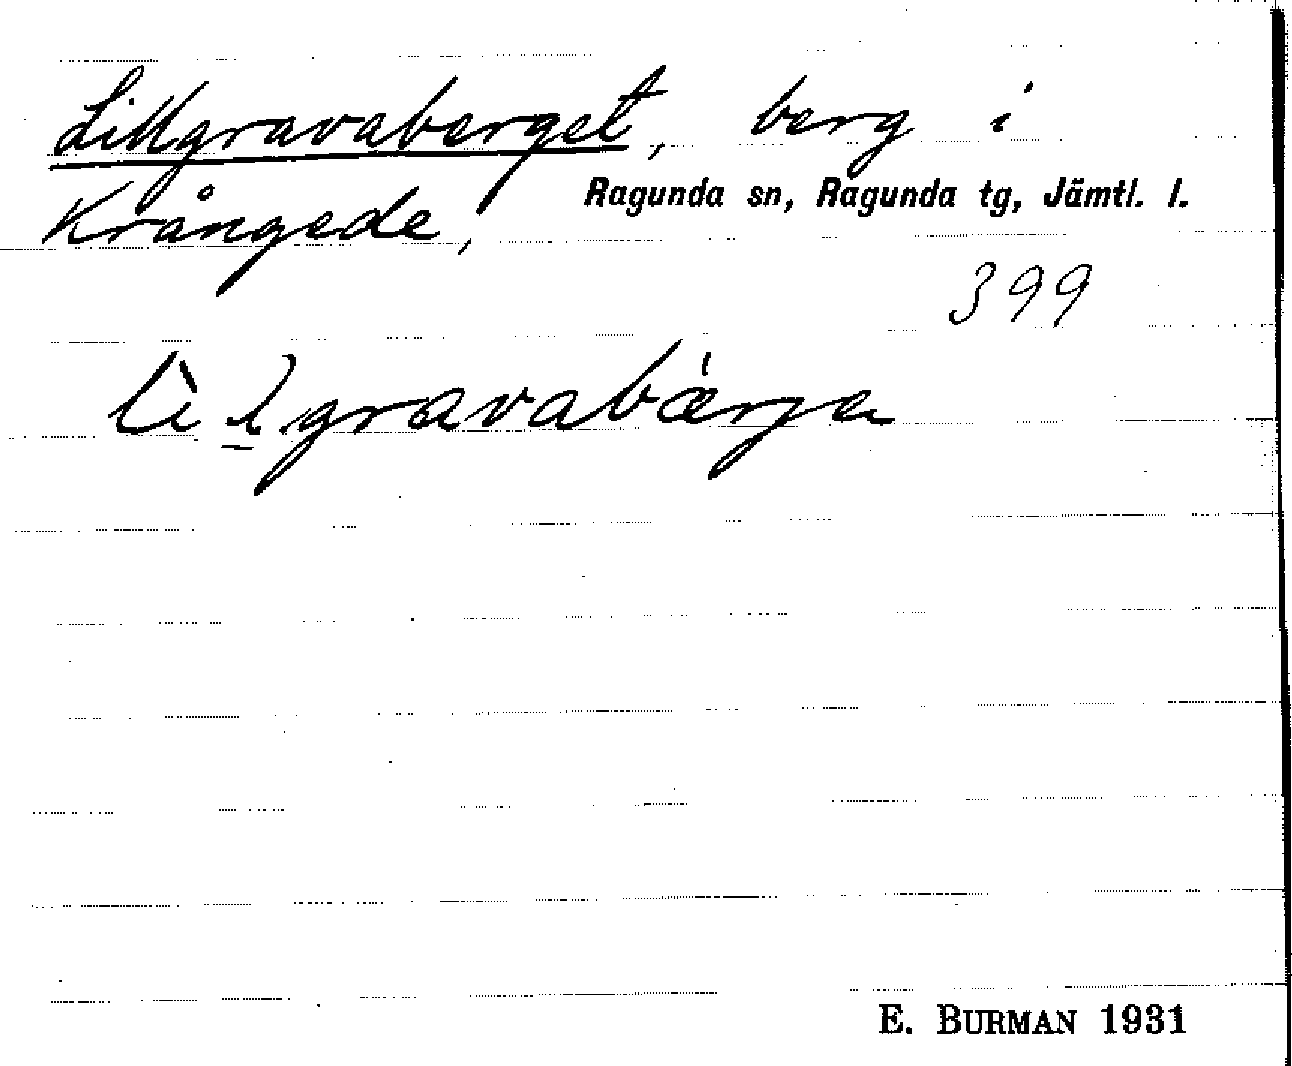 Lillgravaberget, berg i
Krångede, Ragunda sn, Ragunda tg, Jämtl. l.
399
lìlgravabärja
E. BURMAN 1931